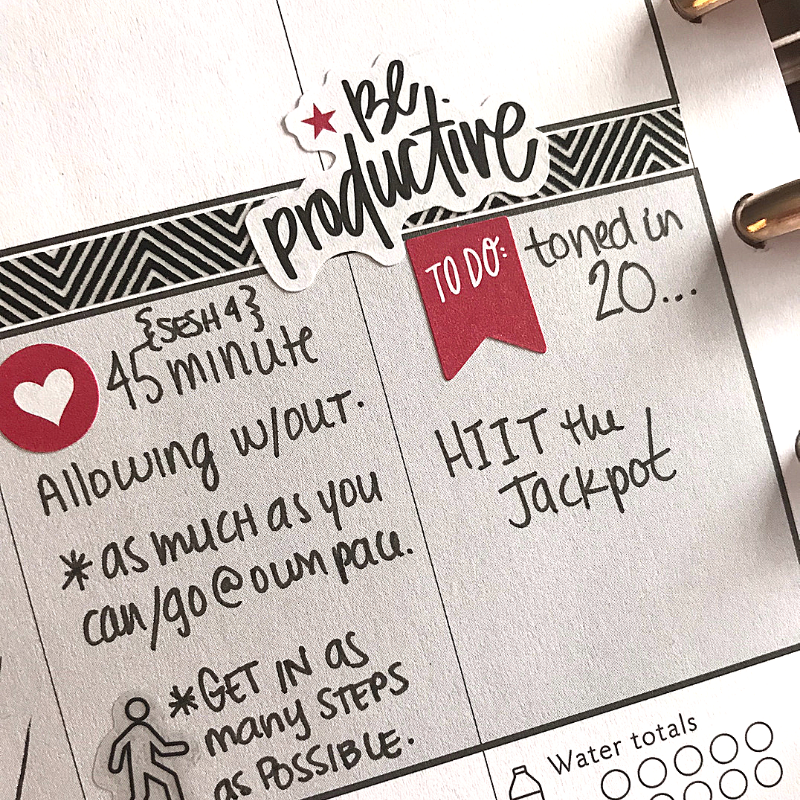 Be
productive
{SESH 4}
45 minute
Allowing w/out.
* as much as you
can/go @ own pace.
* GET IN as
many STEPS
as POSSIBLE.
TO DO:
toned in
20...
HIIT the
Jackpot
Water totals